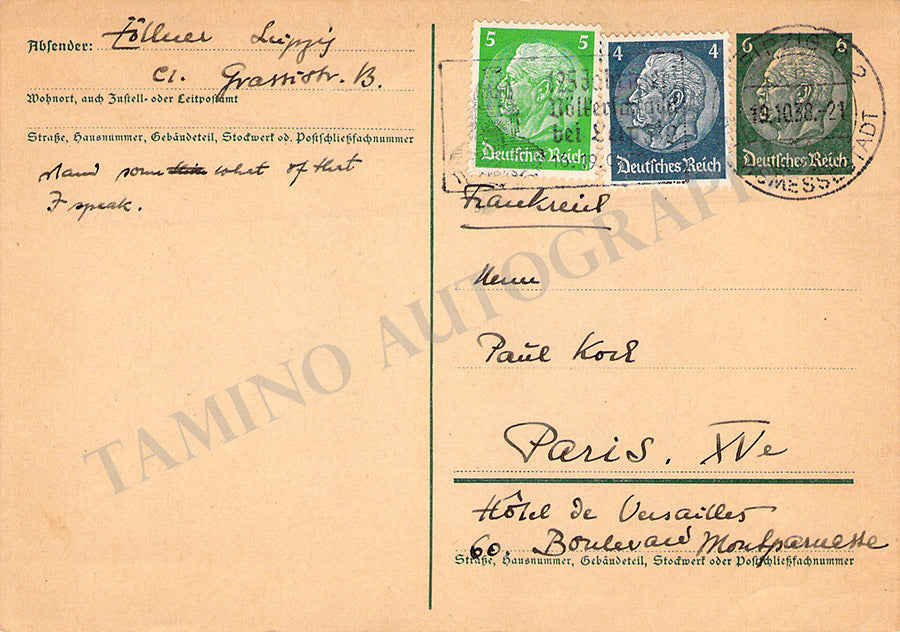 Absender: Zöllner Leipzig
C1. Grassistr. 13.
Wohnort, auch Zustell- oder Leitpostamt
Straße, Hausnummer, Gebäudeteil, Stockwerk od. Postschließfachnummer
what of that
I speak.
5 5
Deutsches Reich
4 4
Deutsches Reich
6 6
Deutsches Reich
LEIPZIG 2
19.10.38.-21
MESSESTADT
125 Jahre
Völkerschlacht
bei Leipzig
Frankreich
Herrn
Paul Kock
Paris. XVe
Hôtel de Versailles
60. Boulevard Montparnasse
Straße, Hausnummer, Gebäudeteil, Stockwerk oder Postschließfachnummer
TAMINO AUTOGRAPHS